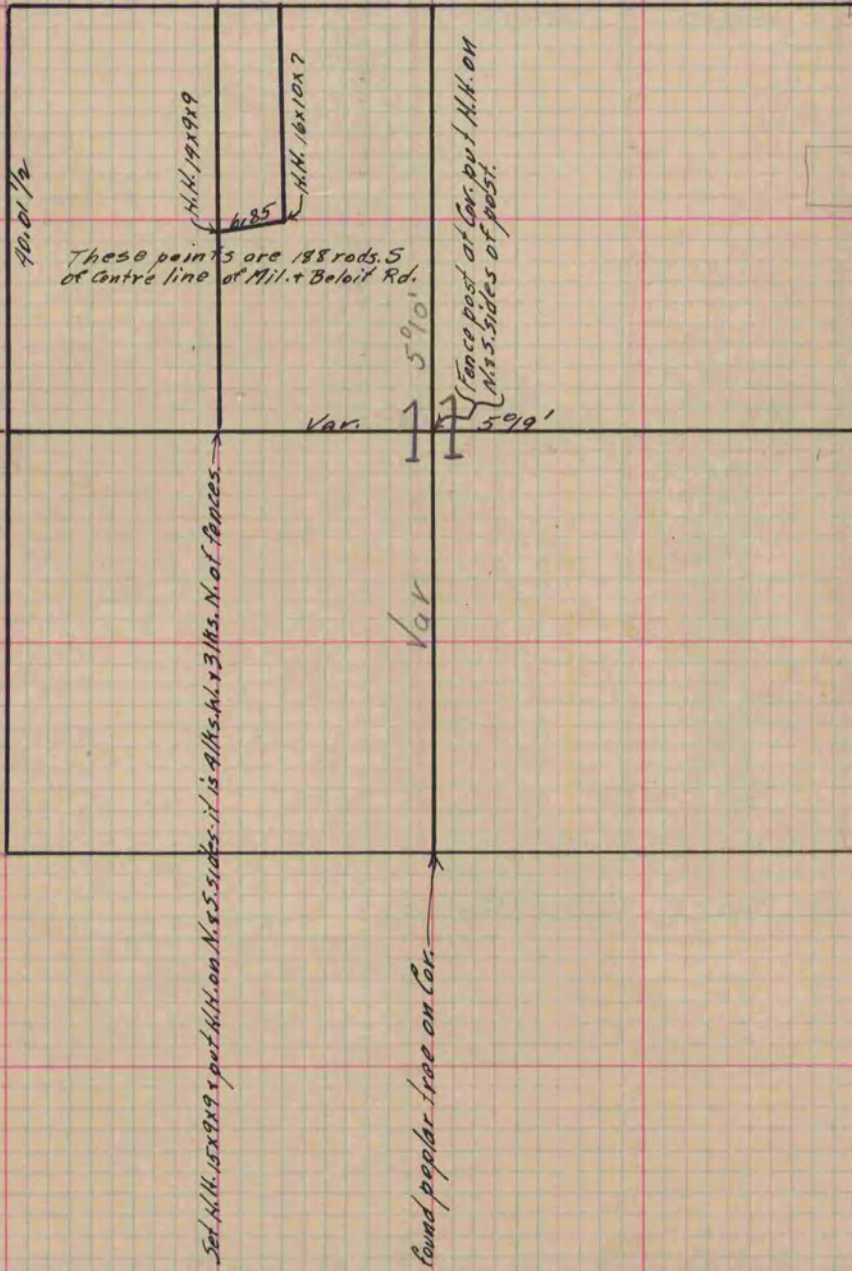 40.01 1/2
H.H. 14x9x9
H.H. 16x10x7
6.85
These points are 188 rods. S
of Centre line of Mil. + Beloit Rd.
Fence post at Cor. put H.H. on
N. & S. sides of post.
5°10'
Var.
5°19'
Var
Set H.H. 15x9x9 & put H.H. on N. & S. sides - it is 4 lks. W. & 3 lks. N. of fences.
Found poplar tree on Cor.